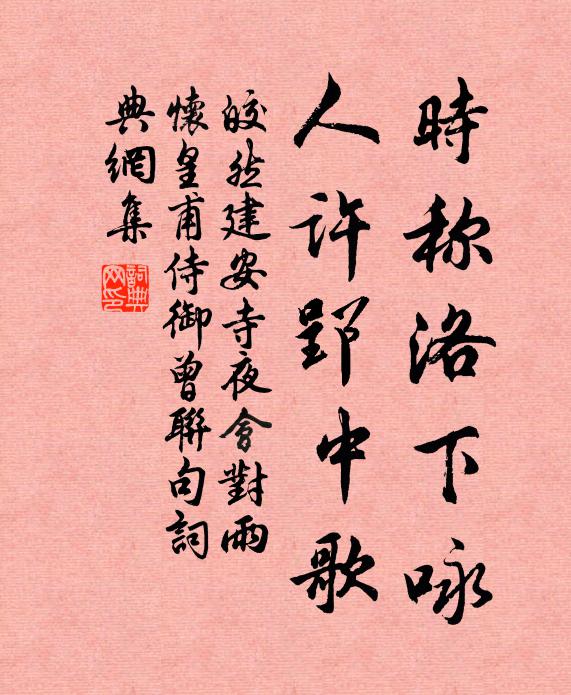 時称洛下咏
人許郢中歌
皎然建安寺夜會對雨
懷皇甫侍御曾聯句詞
典網集
詞典网印